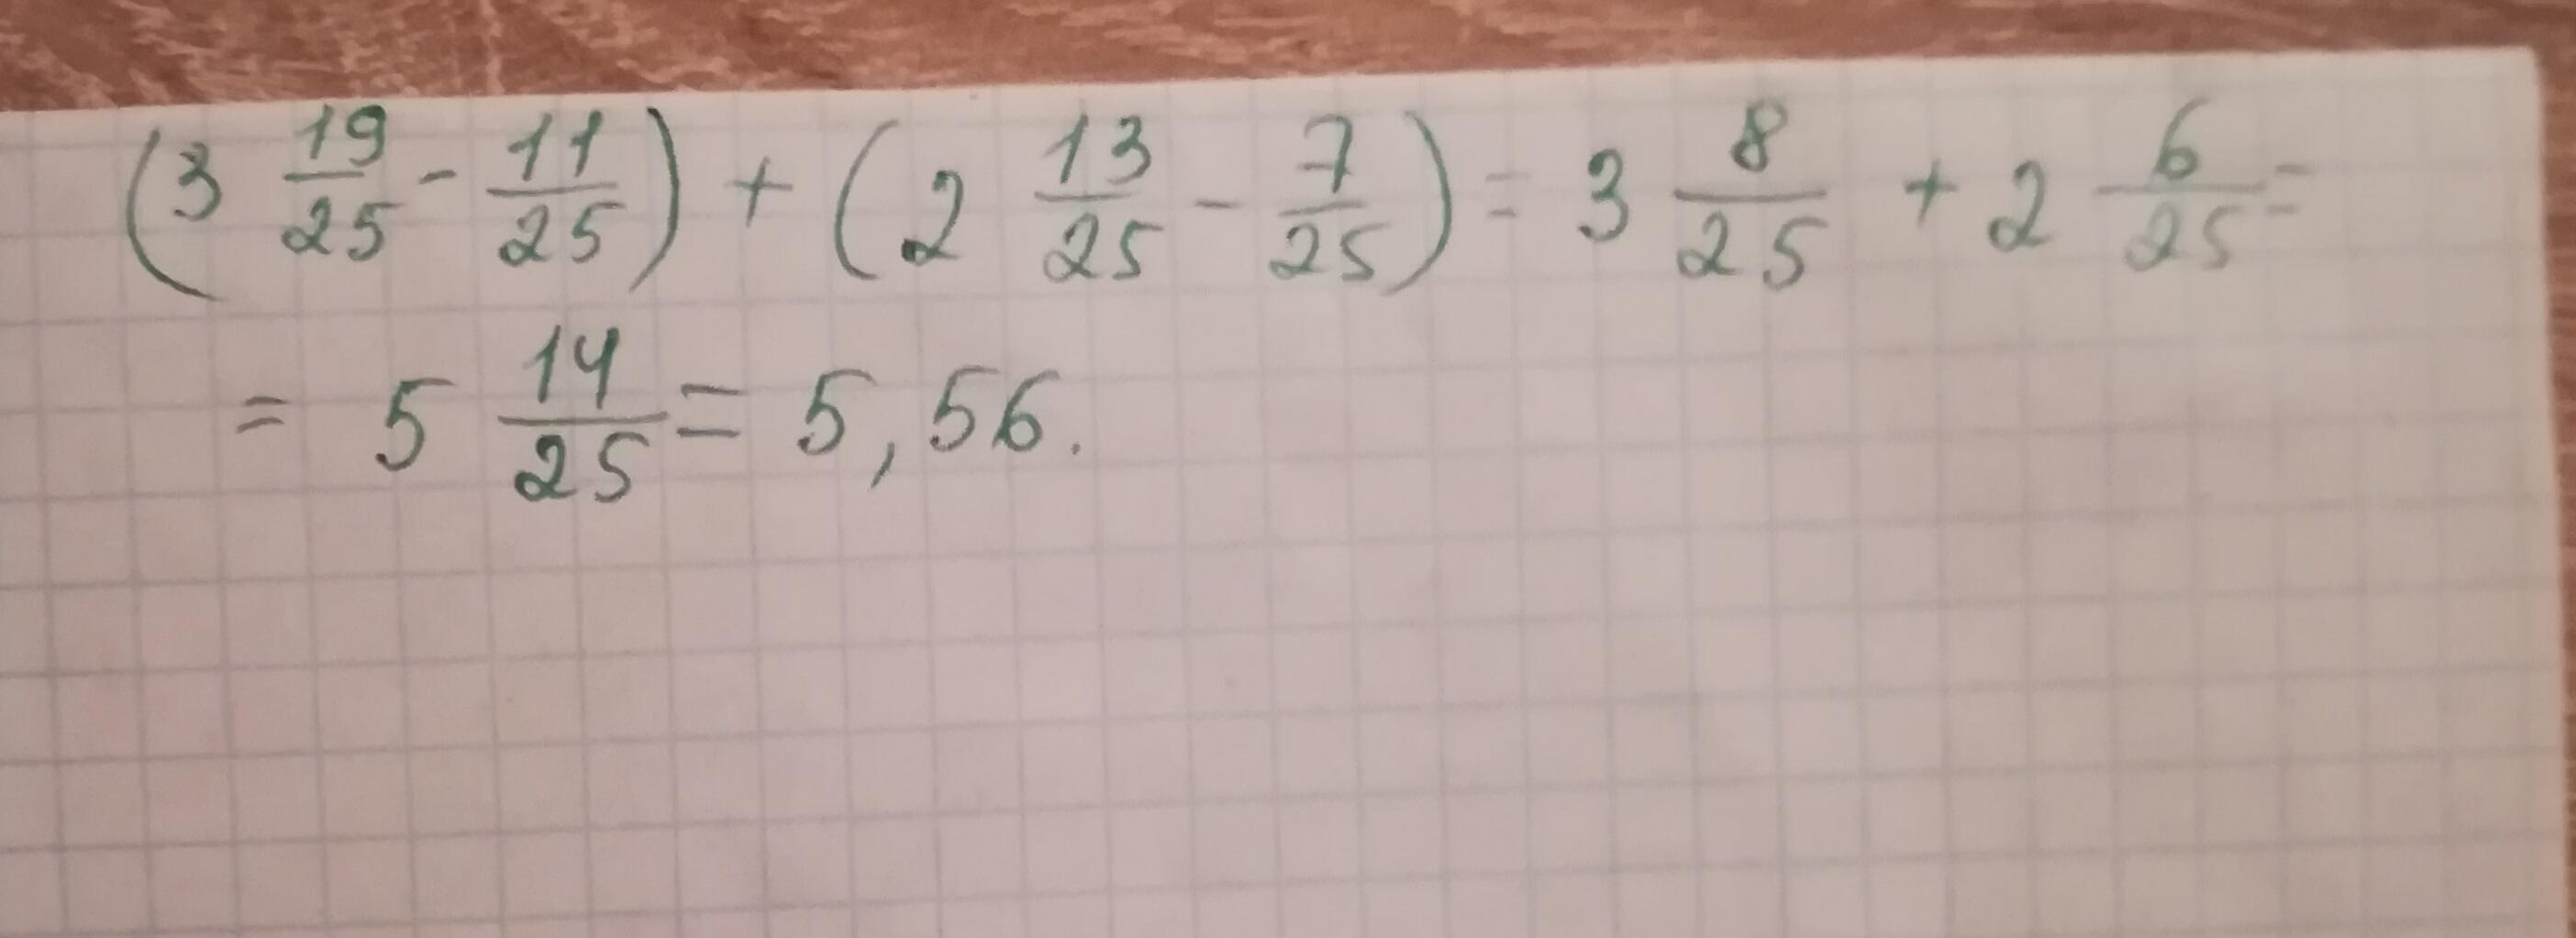 (3 19/25 - 11/25) + (2 13/25 - 7/25) = 3 8/25 + 2 6/25 =
= 5 14/25 = 5,56.